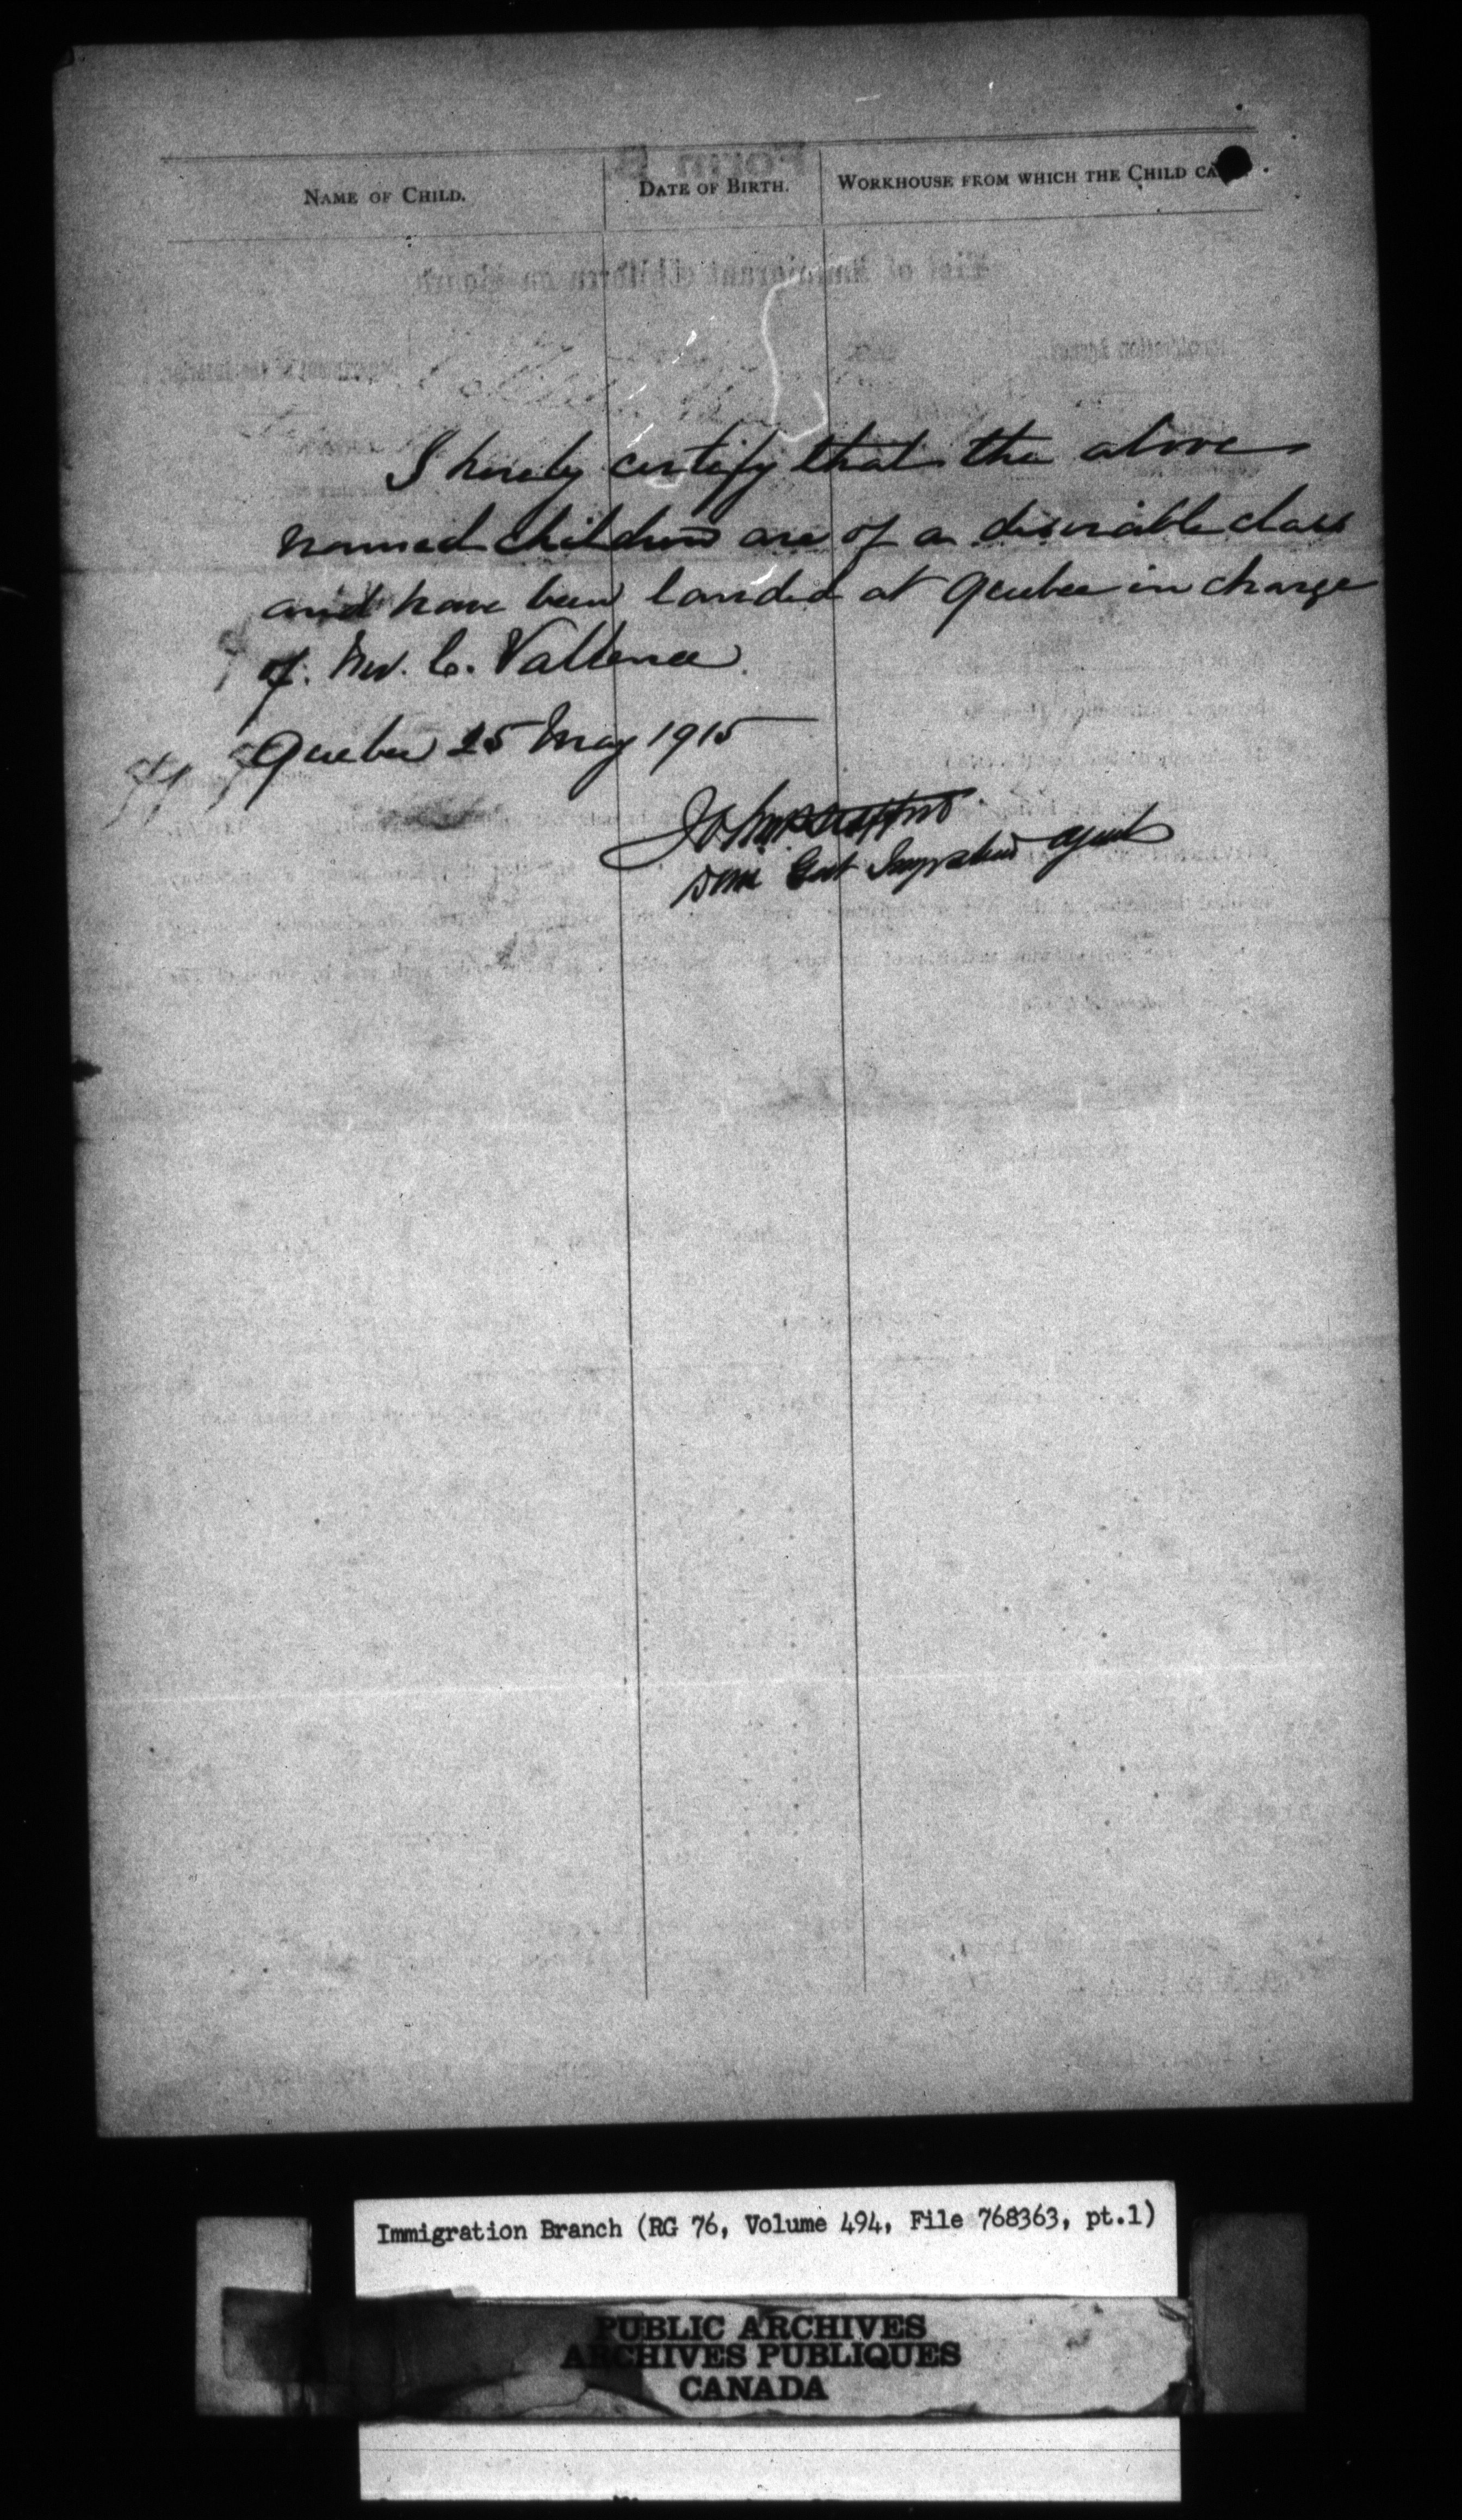 NAME OF CHILD. DATE OF BIRTH. WORKHOUSE FROM WHICH THE CHILD CA
I hereby certify that the above
named children are of a desirable class
and have been landed at Quebec in charge
of C. Vallence
Quebec 25 May 1915
Dom Govt Immigration Agent
Immigration Branch (RG 76, Volume 494, File 768363, pt.1)
PUBLIC ARCHIVES
ARCHIVES PUBLIQUES
CANADA